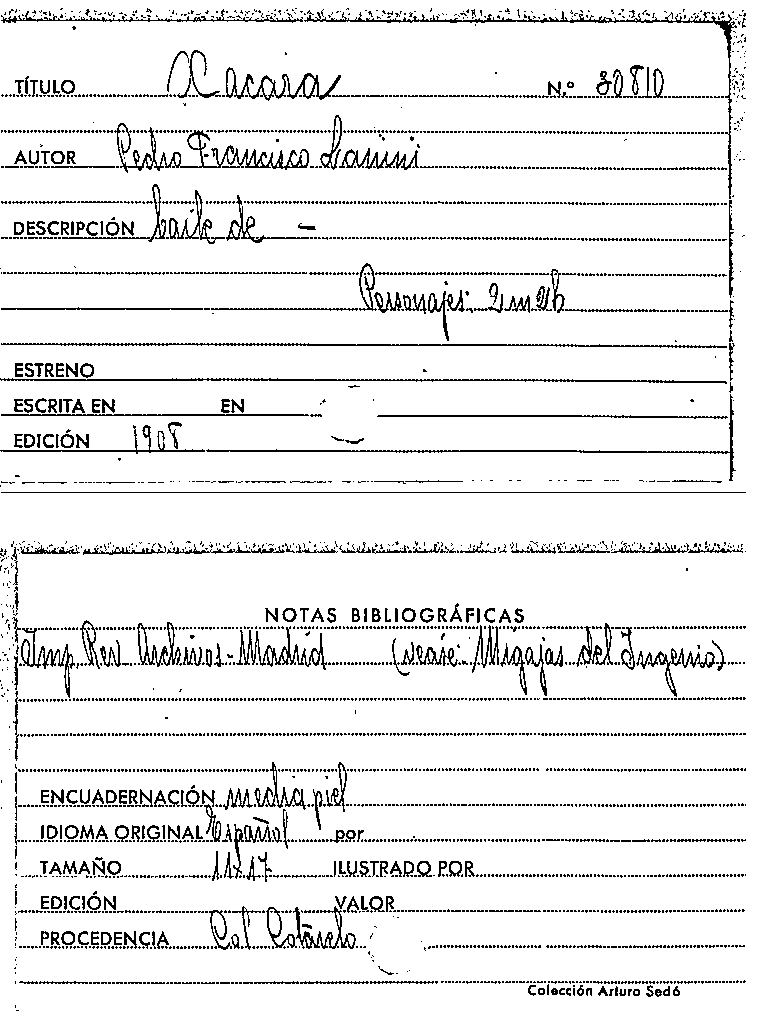 TÍTULO Xacara N.º 30810
AUTOR Pedro Francisco Lanini
DESCRIPCIÓN baile de —
Personajes: 2m 2h
ESTRENO
ESCRITA EN EN
EDICIÓN 1908
NOTAS BIBLIOGRÁFICAS
Imp. Rev. Archivos - Madrid (vease: Migajas del Ingenio)
ENCUADERNACIÓN media piel
IDIOMA ORIGINAL Español por
TAMAÑO 11x17 ILUSTRADO POR
EDICIÓN VALOR
PROCEDENCIA Col. Cotarelo
Colección Arturo Sedó